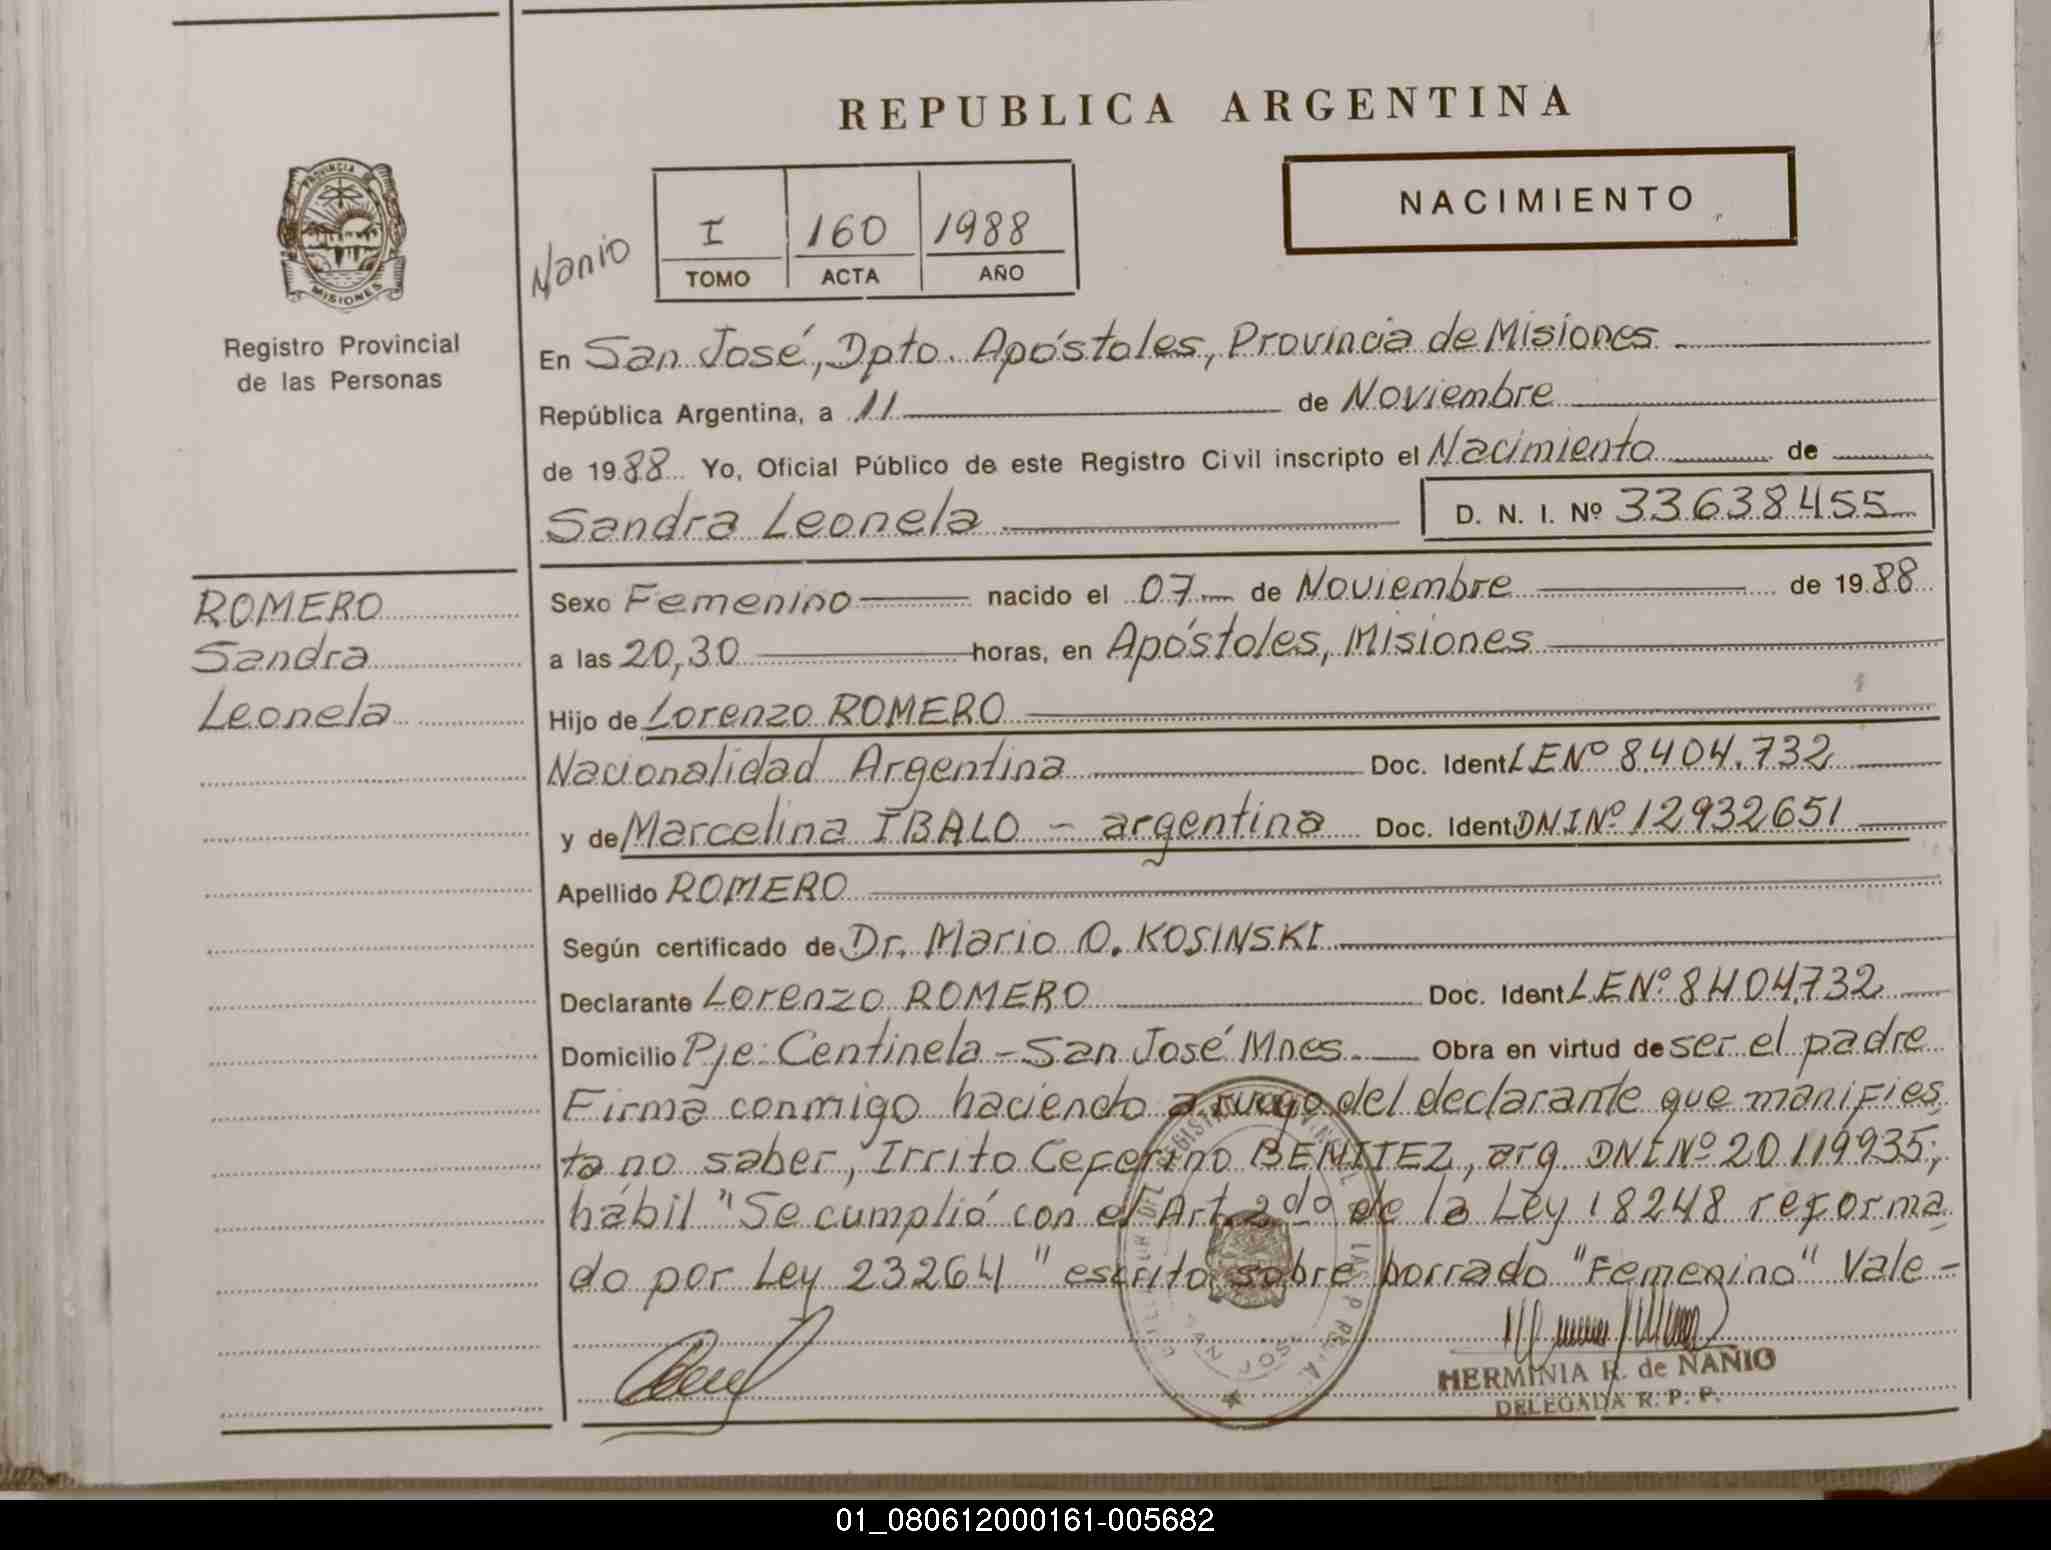 REPUBLICA ARGENTINA
NACIMIENTO
PROVINCIA DE
MISIONES
Registro Provincial
de las Personas
Nanio
I 160 1988
TOMO ACTA AÑO
En San José, Dpto. Apóstoles, Provincia de Misiones
República Argentina, a 11 de Noviembre
de 1988 Yo, Oficial Público de este Registro Civil inscripto el Nacimiento de
Sandra Leonela D. N. I. Nº 33638455
ROMERO
Sandra
Leonela
Sexo Femenino nacido el 07 de Noviembre de 1988
a las 20,30 horas, en Apóstoles, Misiones
Hijo de Lorenzo ROMERO
Nacionalidad Argentina Doc. Ident LENº 8.404.732
y de Marcelina IBALO - argentina Doc. Ident DNINº 12932651
Apellido ROMERO
Según certificado de Dr. Mario O. KOSINSKI
Declarante Lorenzo ROMERO Doc. Ident LENº 8404.732
Domicilio Pje: Centinela - San José Mnes. Obra en virtud de ser el padre
Firma conmigo haciendo a ruego del declarante que manifies
ta no saber, Irrito Ceferino BENITEZ, arg. DNINº 20119935;
hábil "Se cumplió con el Art. 2do de la Ley 18248 reforma
do por Ley 23264" escrito sobre borrado "Femenino" Vale -
SAN JOSE
HERMINIA R. de NAÑIO
DELEGADA R. P. P.
01_080612000161-005682